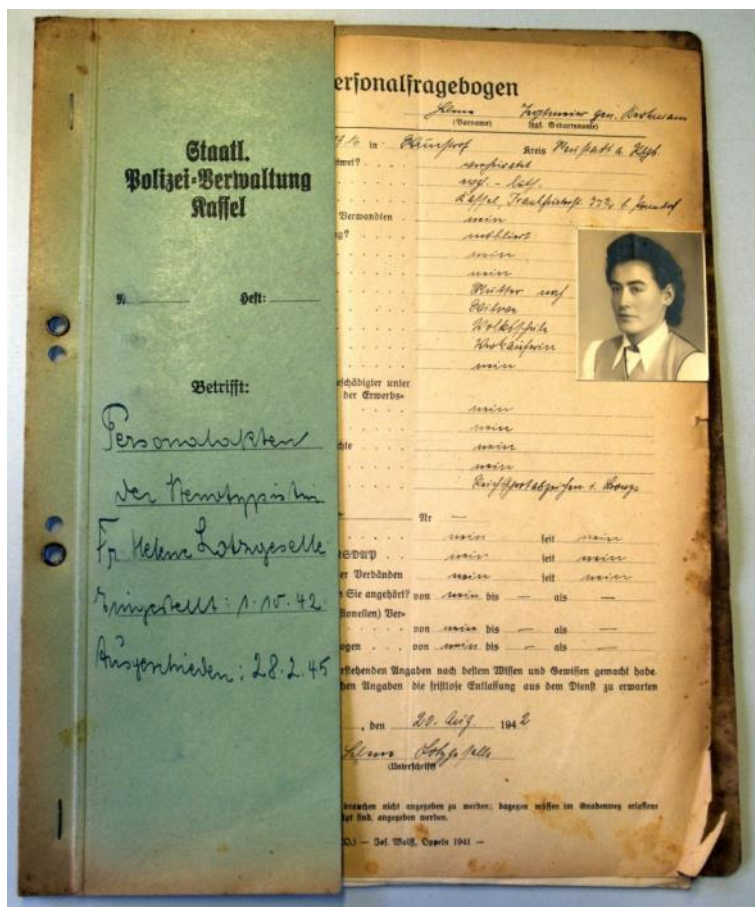 Staatl.
Polizei-Verwaltung
Kassel
Heft:
Betrifft:
Personalakten
der Stenotypistin
Fr Helene Lotzgeselle
Eingestellt: 1.10.42.
Ausgeschieden: 28.2.45
ersonalfragebogen
(Vorname) (ggf. Geburtsname)
in Kreis Neustadt a. Rbg.
twei? verheiratet
evgl.-luth.
Kassel, Frankfurterstr.
Verwandten nein
ng? möbliert
nein
nein
Mutter
Witwe
Volksschule
Verkäuferin
nein
eschädigter unter
der Erwerbs-
nein
nein
chte nein
nein
Reichssportabzeichen i. Bronze
Nr —
nein seit nein
SDAP nein seit nein
er Verbänden nein seit nein
n Sie angehört? von nein bis — als —
ionellen) Ver-
von nein bis — als —
ogen von nein bis — als —
rstehenden Angaben nach bestem Wissen und Gewissen gemacht habe.
chen Angaben die fristlose Entlassung aus dem Dienst zu erwarten
, den 20. Aug. 1942
Helene Lotzgeselle
(Unterschrift)
brauchen nicht angegeben zu werden; dagegen müssen im Gnadenweg erlassene
lgt sind, angegeben werden.
— Jos. Wolff, Oppeln 1941 —